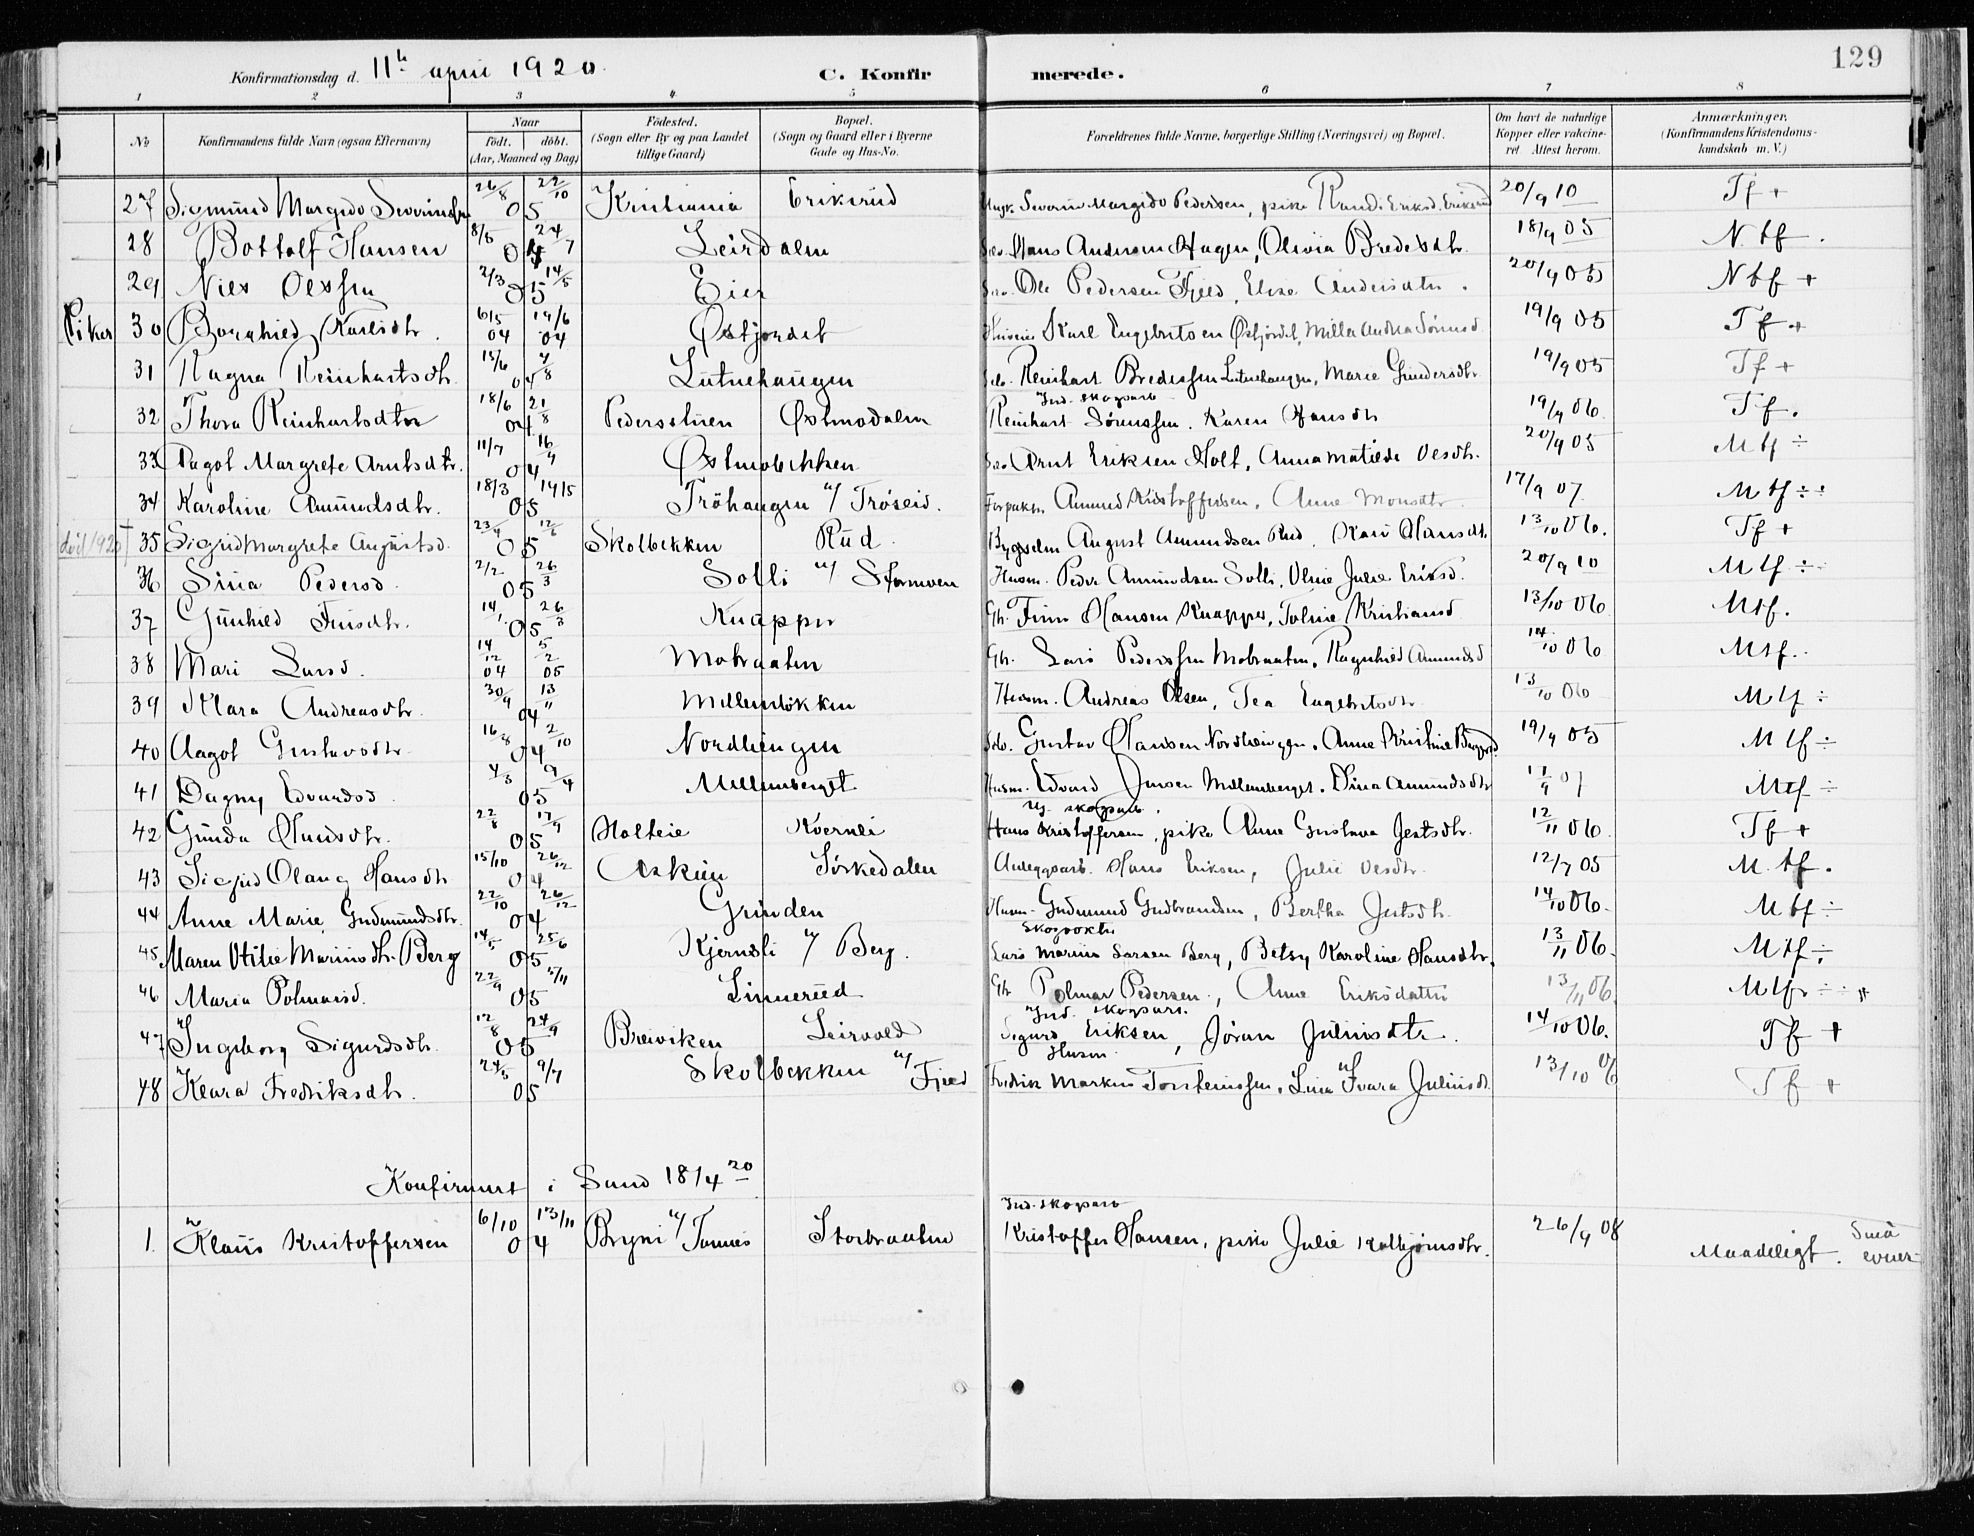 129
Konfirmationsdag d. 11te april 1920. C. Konfirmerede.
1 2 3 4 5 6 7 8
No. Konfirmandens fulde Navn (ogsaa Efternavn) Naar født. døbt. (Aar, Maaned og Dag) Fødested. (Sogn eller By og paa Landet tillige Gaard) Bopæl. (Sogn og Gaard eller i Byerne Gade og Hus-No. Forældrenes fulde Navne, borgerlige Stilling (Næringsvei) og Bopæl. Om havt de naturlige Kopper eller vakcineret. Attest herom. Anmærkninger. (Konfirmandens Kristendomskundskab m. V.)
27 Sigmund Margido 26/8 22/10 05 Kristiania Erikrud Ungk. Severin Margido Pedersen, pike Randi Eriksd. 20/9 10 Tf +
28 Bottolf Hansen 8/5 24/7 05 Leirdalen Selv. Hans Andersen Hagen, Olivia Bredesdtr. 18/9 05 N. tf.
29 Niels Olsen 2/3 14/5 05 Eier Ole Pedersen Fjeld, Elise Andersdtr. 20/9 05 Ntf +
Piker 30 Borghild Karlsdtr. 6/5 04 19/6 04 Østjordet Karl Engebritsen Østjordet, Milla Andrea 19/9 05 Tf +
31 Ragna Reinhartsdtr. 15/6 7/8 04 Lutnehaugen Selv. Reinhart Bredessen Lutnehaugen, Marie Gundersdtr. 19/9 05 Tf +
32 Thora Reinhartsdtr 18/6 21/8 04 Østmodalen Ind. skogsarb Reinhart Sørenssen. Karen Hansdtr 19/9 06. Tf.
33 Dagot Margrete Arntsdtr. 11/7 16/9 04 Østmobekken Selv. Arnt Eriksen Holt, Anna Matilde Olsdtr. 20/9 05 Mtf ÷
34 Karoline Amundsdtr. 18/3 14/5 05 Tröhaugen u/ Tröseid. Forpakt. Amund Kristoffersen, Anne Monsdtr 17/9 07. Mtf ÷
död 1920 † 35 Sigrid Margrete Augustsd. 23/4 12/6 05 Skolbekken Rud. Bygselm August Amundsen Rud. Kari Hansdtr. 13/10 06. Tf +
36 Sina Pedersd. 2/2 26/3 05 Solli u/ Stormoen Husm. Peder Amundsen Solli, Oline Julie Eriksd. 20/9 10 Mtf ÷
37 Gunhild Finsdtr. 14/1. 26/3 05 Knapper Gb. Finn Hansen Knapper, Toline Kristiansd 13/10 06. Mtf.
38 Mari Larsd. 14/12 04 5/2 05 Mobraaten Gb. Lars Pederssen Mobraaten. Ragnhild Amundsd 14/10 06 Mtf.
39 Klara Andreasdtr. 30/9 13/11 04 Mellemløkken Husm. Andreas Olsen, Tea Engebritsdtr 13/10 06 Mtf ÷
40 Aagot Gustavsdtr. 16/8 2/10 04 Nordhengen Selv. Gustav Hansen Nordhengen. Anne Kristine 19/9 05 Mtf ÷
41 Dagny Edvardsd. 4/3 9/4 05 Mellemberget Husm. Edvard Jensen Mellemberget. Dina Amundsdtr 07 Mtf ÷
42 Gunda Hansdtr. 22/8 17/9 05 Holteie Kvernli Ug. skogsarb. Hans Kristoffersen, pike Anne Gustava Jestsdtr. 12/11 06. Tf +
43 Sigrid Olaug Hansdtr 15/10 26/12 04 Askim Sörkedalen Anleggsarb. Hans Eriksen, Julie Olsdtr. 12/7 05 M. tf.
44 Anne Marie Gudmundsdtr. 22/10 26/12 04 Grinden Husm. Gudmund Gudbrandsen, Bertha Jestsdtr. 14/10 06. Mtf ÷
45 Maren Otilie Marinsdtr. Berg 14/5 25/6 05 Kjernsli u/ Berg. Skogvokter Lars Marius Larsen Berg, Betsy Karoline Hansdtr. 13/11 06. Mtf ÷
46 Maria Polmarsd. 22/9 5/11 05 Linnerud Gb Polmar Pedersen, Anne Eriksdatter 13/11 06. Mtf ÷
47 Ingeborg Sigurdsdtr. 12/8 24/9 05 Breiviken Leirvold Ind. skogsarb. Sigurd Eriksen, Jöran Juliusdtr. 14/10 06. Tf +
48 Klara Fredriksdtr. 24/5 9/7 05 Skolbekken u/ Fjeld Husm. Fredrik Markus Torsteinssen, Lina Ivara Juliusdtr. 13/10 06 Tf +
Konfirmert i Sand 18/4 20
1. Klaus Kristoffersen 6/10 13/11 04 Bryni u/ Storbraaten Ind. skogsarb Kristoffer Hansen, pike Julie Kolbjørnsdtr. 26/9 08 Maadeligt. Små evner